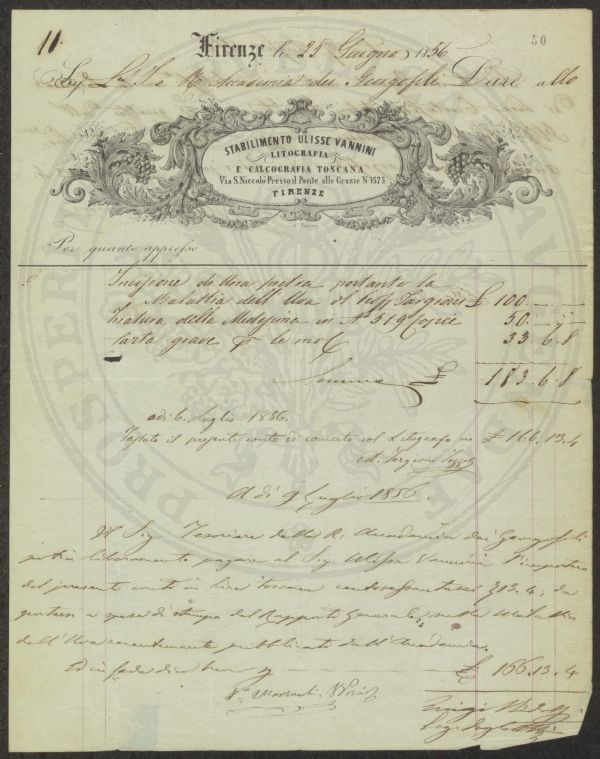 11.
50
Firenze li 25 Giugno 1856
La I. e R. Accademia dei Georgofili Dare allo
STABILIMENTO ULISSE VANNINI
LITOGRAFIA
E CALCOGRAFIA TOSCANA
Via S. Niccolo Presso il Ponte alle Grazie N. 1575
FIRENZE
Per quanto appresso
Incisione di Una pietra portante la
Malattia dell'Uva del Targioni £ 100
Tiratura della Medesima in N° 519 Copie 50
Carta grave 33.6.8
Somma £ 183.6.8
adi 6. Luglio 1856.
Tassato il presente conto di concerto col Litografo in £ 166.13.4
A. Targioni Tozzetti
A dì 9 Luglio 1856.
Il Sig. Tesoriere della R. Accademia dei Georgofili
potrà liberamente pagare al Sig. Ulisse Vannini l'importare
del presente conto in lire toscane centosessantasei 13.4; da
portarsi a spese di stampa del Rapporto Generale sulla Malattia
dell'Uva recentemente pubblicato dall'Accademia.
Ed in fede dico £ 166.13.4
Luigi
PROSPERITA